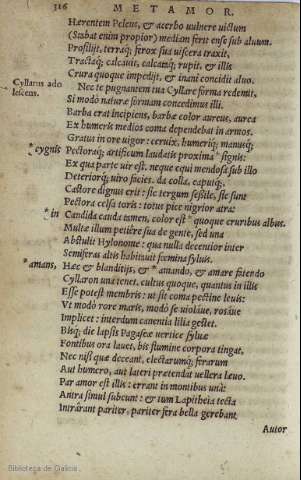 316 METAMOR.
Hærentem Peleus, & acerbo vulnere victum
(Stabat enim propior) mediam ferit ense sub alvum.
Prosilijt, terraq; ferox sua viscera traxit,
Tractaq; calcavit, calcataq; rupit, & illis
Crura quoque impedijt, & inani concidit alvo.
Cyllarus ado
lescens.
Nec te pugnantem tua Cyllare forma redemit,
Si modò naturæ formam concedimus illi.
Barba erat incipiens, barbæ color aureus, aurea
Ex humeris medios coma dependebat in armos.
Gratus in ore vigor: cervix, humeriq; manusq;
* cygnis
Pectoraq; artificum laudatis proxima * signis:
Ex qua parte vir est. neque equi mendosa sub illo
Deteriorq; viro facies. da colla, caputq;,
Castore dignus erit: sic tergum sessile, sic sunt
Pectora celsa toris: totus pice nigrior atra:
* in
Candida cauda tamen, color est * quoque cruribus albus.
Multæ illum petiêre sua de gente, sed una
Abstulit Hylonome: qua nulla decentior inter
Semiferas altis habitavit fœmina sylvis.
* amans,
Hæc & blanditijs, & * amando, & amare fatendo
Cyllaron una tenet. cultus quoque, quantus in illis
Esse potest membris: ut sit coma pectine levis:
Vt modò rore maris, modò se violáve, rosáve
Implicet: interdum canentia lilia gestet.
Bisq; die lapsis Pagaseæ vertice sylvæ
Fontibus ora lavet, bis flumine corpora tingat,
Nec nisi quæ deceant, electarumq; ferarum
Aut humero, aut lateri prætendat vellera lævo.
Par amor est illis: errant in montibus unà:
Antra simul subeunt: & tum Lapitheia tecta
Intrârant pariter, pariter fera bella gerebant.
Autor
Biblioteca de Galicia